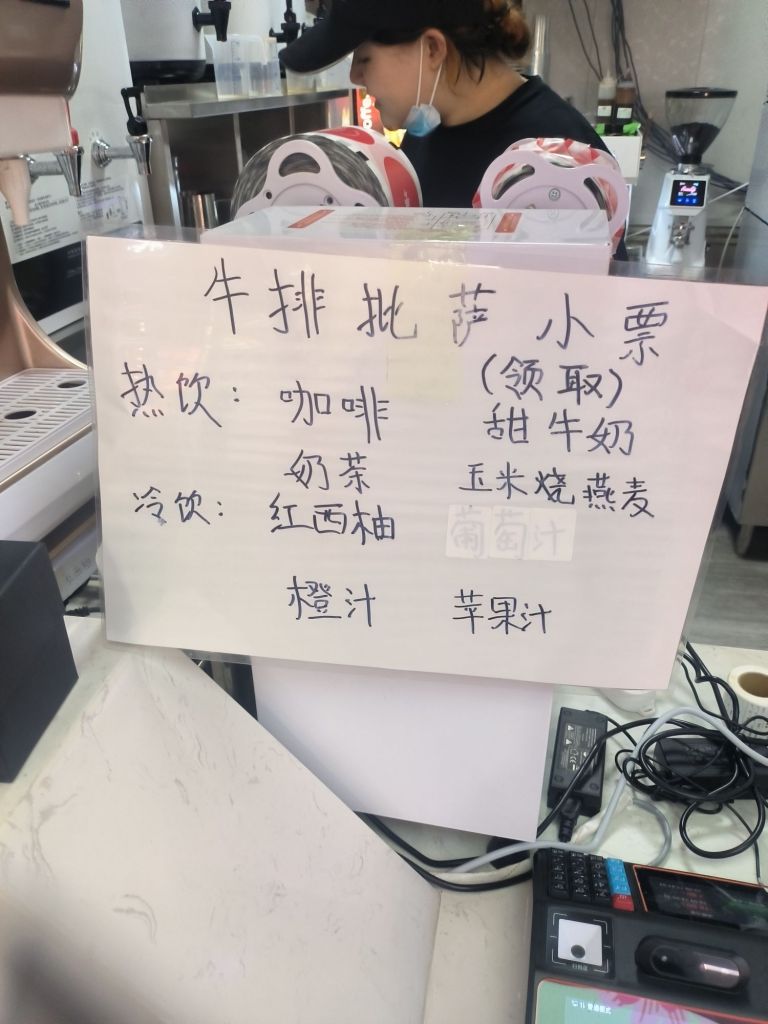 牛排批萨小票
(领取)
热饮: 咖啡 甜牛奶
奶茶 玉米烧燕麦
冷饮: 红西柚 葡萄汁
橙汁 苹果汁